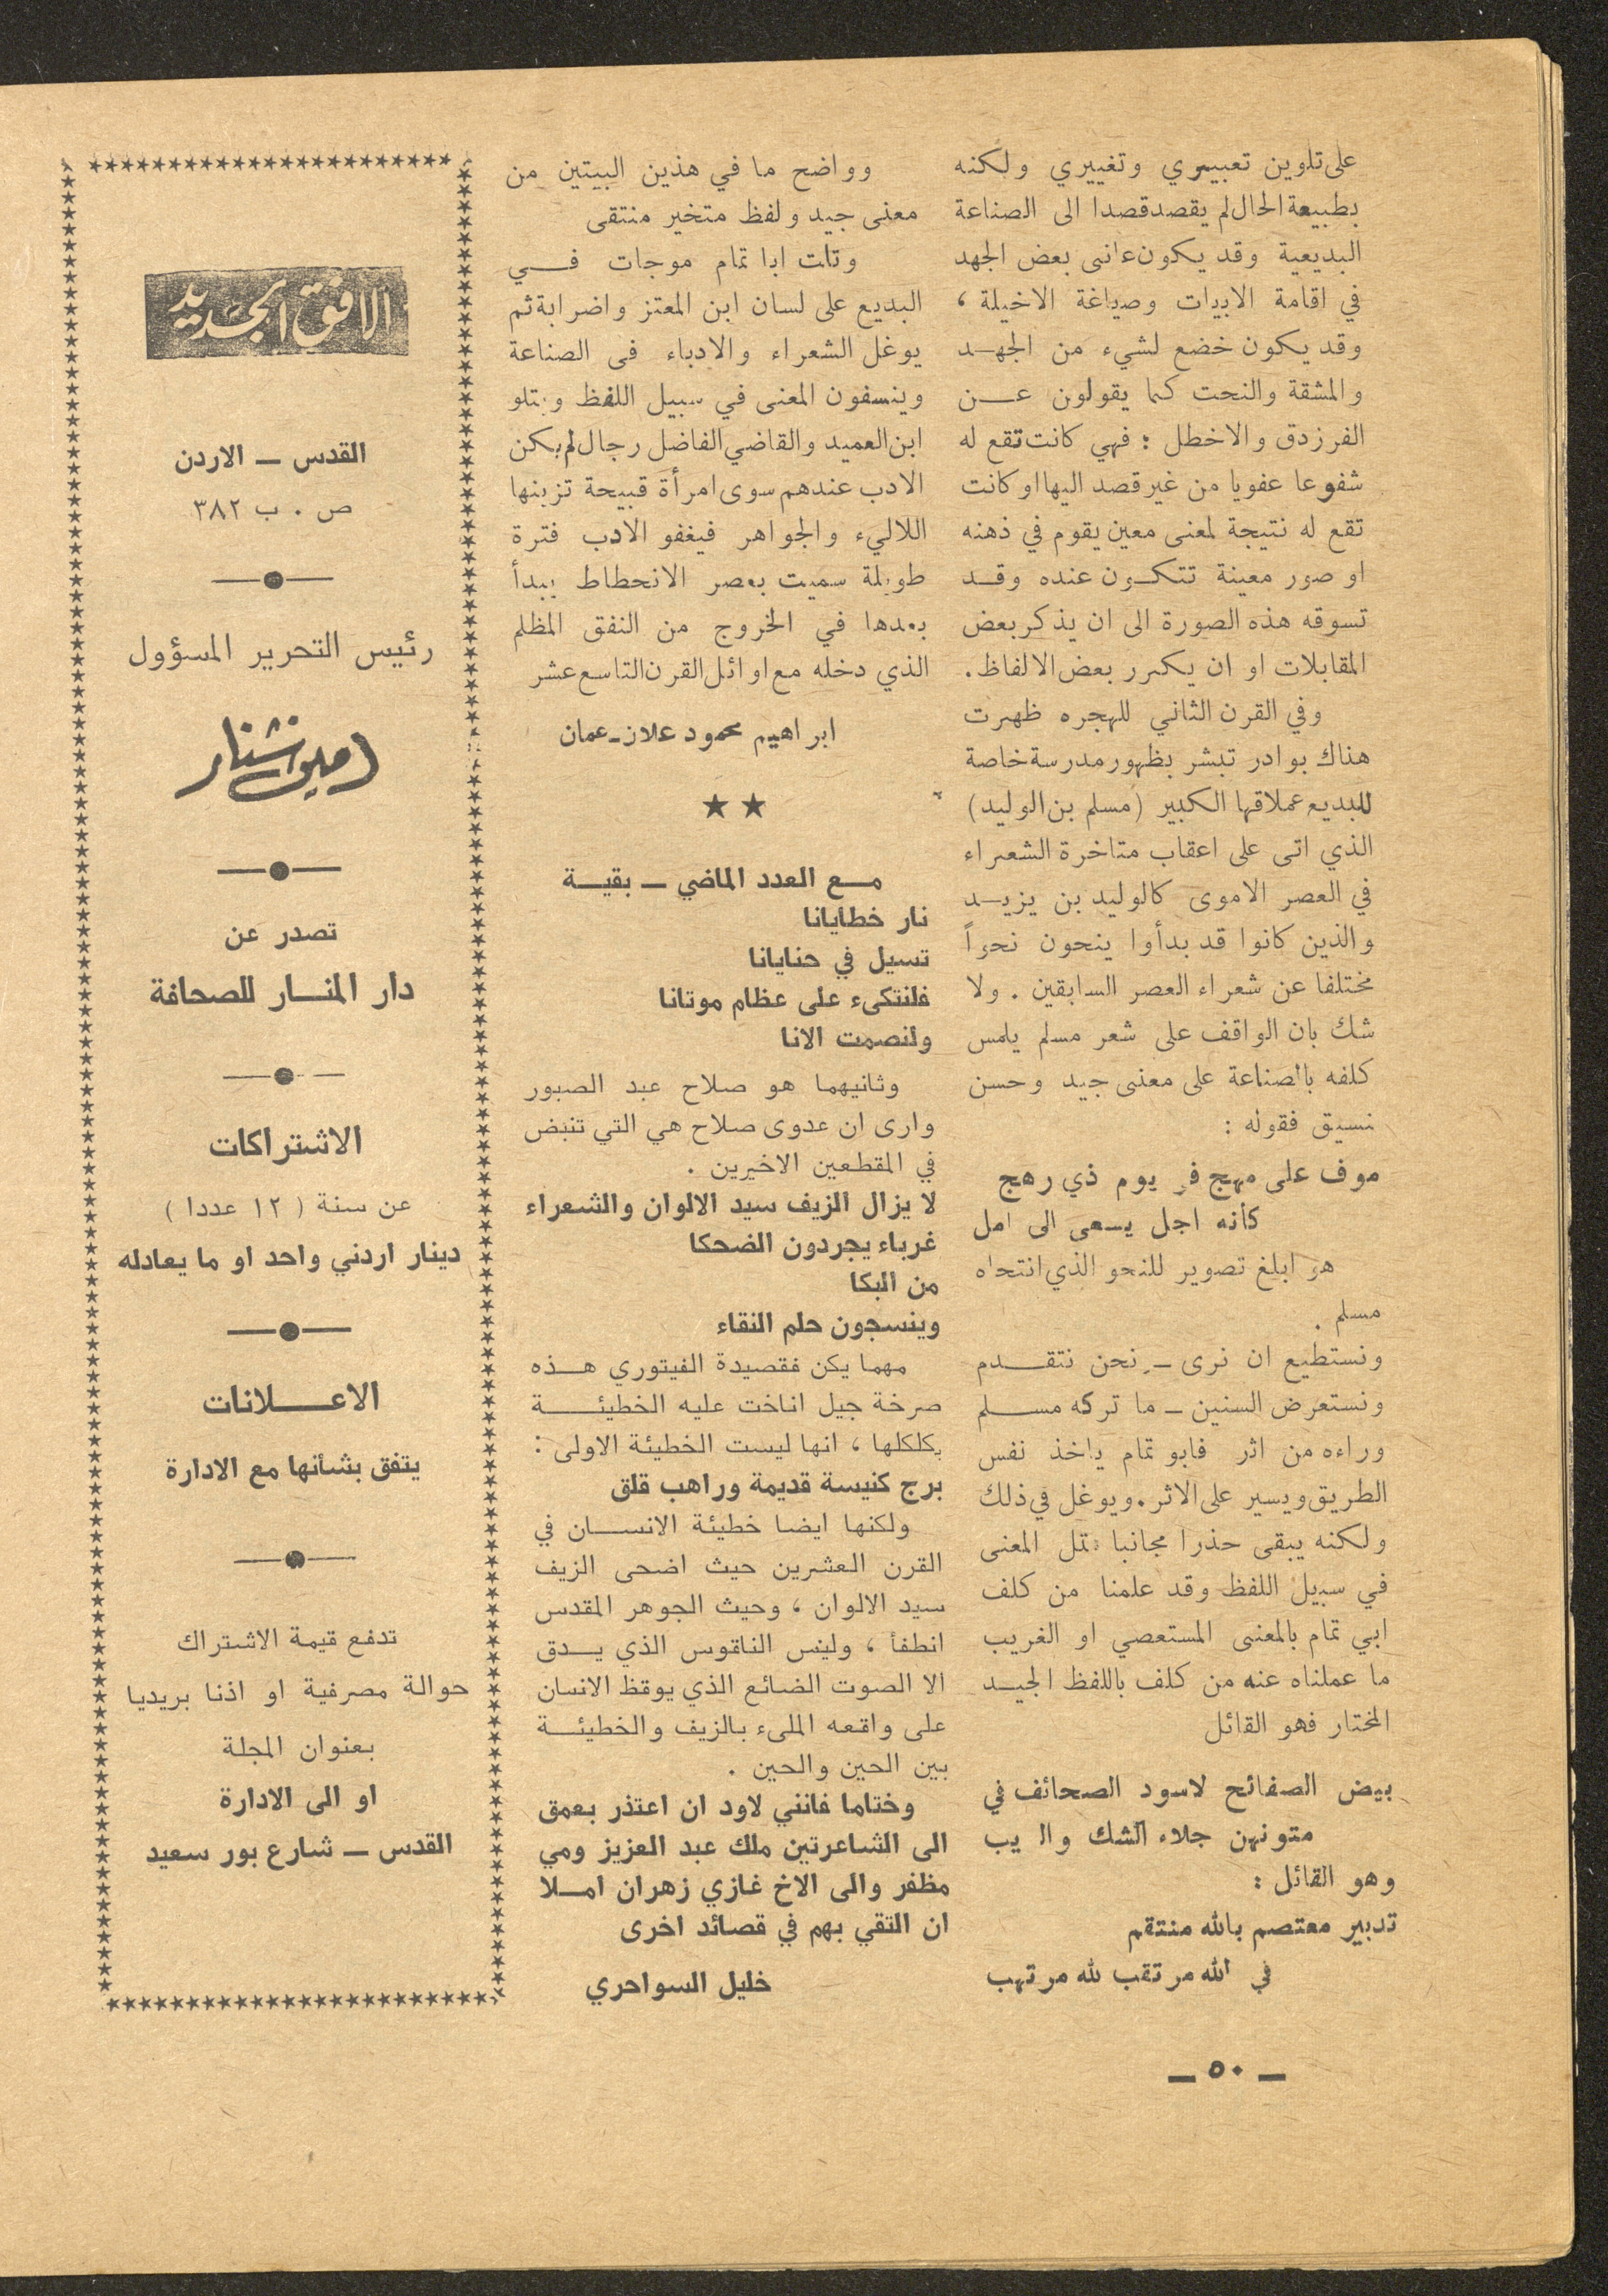 على تلوين تعبيري وتغييري ولكنه
بطبيعة الحال لم يقصد قصدا الى الصناعة
البديعية وقد يكون عانى بعض الجهد
في اقامة الابيات وصياغة الاخيلة ،
وقد يكون خضع لشيء من الجهـد
والمشقة والنحت كما يقولون عـــن
الفرزدق والاخطل : فهي كانت تقع له
شفوعا عفويا من غير قصد اليها او كانت
تقع له نتيجة لمعنى معين يقوم في ذهنه
او صور معينة تتكـون عنده وقـد
تسوقه هذه الصورة الى ان يذكر بعض
المقابلات او ان يكرر بعض الالفاظ .
وفي القرن الثاني للهجره ظهرت
هناك بوادر تبشر بظهور مدرسة خاصة
للبديع عملاقها الكبير (مسلم بن الوليد)
الذي اتى على اعقاب متاخرة الشعراء
في العصر الاموى كالوليد بن يزيـد
والذين كانوا قد بدأوا ينحون نحواً
مختلفا عن شعراء العصر السابقين . ولا
شك بان الواقف على شعر مسلم يلمس
كلفه بالصناعة على معنى جيد وحسن
نسيق فقوله :
موف على مهج في يوم ذي رهج
كأنه اجل يسعى الى امل
هو ابلغ تصوير للنحو الذي انتحاه
مسلم .
ونستطيع ان نرى ـ نحن نتقـــدم
ونستعرض السنين ـ ما تركه مســـلم
وراءه من اثر فابو تمام ياخذ نفس
الطريق ويسير على الاثر . ويوغل في ذلك
ولكنه يبقى حذرا مجانبا المعنى
في سبيل اللفظ وقد علمنا من كلف
ابي تمام بالمعنى المستعصي او الغريب
ما عملناه عنه من كلف باللفظ الجيـد
المختار فهو القائل
بيض الصفائح لاسود الصحائف في
متونهن جلاء الشك وال يب
وهو القائل :
تدبير معتصم بالله منتقم
في الله مرتقب لله مرتهب
وواضح ما في هذين البيتين من
معنى جيد ولفظ متخير منتقى
وتلت ابا تمام موجات فـــي
البديع على لسان ابن المعتز واضرابة ثم
يوغل الشعراء والادباء فى الصناعة
وينسفون المعنى في سبيل اللفظ ويتلو
ابن العميد والقاضي الفاضل رجال لم يكن
الادب عندهم سوى امرأة قبيحة تزينها
اللاليء والجواهر فيغفو الادب فترة
طويلة سميت بعصر الانحطاط يبدأ
بعدها في الخروج من النفق المظلم
الذي دخله مع اوائل القرن التاسع عشر
ابراهيم محمود علان ـ عمان
★ ★
مــع العدد الماضي ــ بقيــة
نار خطايانا
تسيل في حنايانا
فلنتكىء على عظام موتانا
ولنصمت الانا
وثانيهما هو صلاح عبد الصبور
وارى ان عدوى صلاح هي التي تنبض
في المقطعين الاخيرين .
لا يزال الزيف سيد الالوان والشعراء
غرباء يجردون الضحكا
من البكا
وينسجون حلم النقاء
مهما يكن فقصيدة الفيتوري هــذه
صرخة جيل اناخت عليه الخطيئـــة
بكلكلها ، انها ليست الخطيئة الاولى :
برج كنيسة قديمة وراهب قلق
ولكنها ايضا خطيئة الانســان في
القرن العشرين حيث اضحى الزيف
سيد الالوان ، وحيث الجوهر المقدس
انطفأ ، وليس الناقوس الذي يــدق
الا الصوت الضائع الذي يوقظ الانسان
على واقعه الملىء بالزيف والخطيئــة
بين الحين والحين .
وختاما فانني لاود ان اعتذر بعمق
الى الشاعرتين ملك عبد العزيز ومي
مظفر والى الاخ غازي زهران امــلا
ان التقي بهم في قصائد اخرى
خليل السواحري
الافق الجديد
القدس ــ الاردن
ص . ب ٣٨٢
رئيس التحرير المسؤول
امين شنار
تصدر عن
دار المنــار للصحافة
الاشتراكات
عن سنة ( ١٢ عددا )
دينار اردني واحد او ما يعادله
الاعـــلانات
يتفق بشأنها مع الادارة
تدفع قيمة الاشتراك
حوالة مصرفية او اذنا بريديا
بعنوان المجلة
او الى الادارة
القدس ــ شارع بور سعيد
ــ ٥٠ ــ